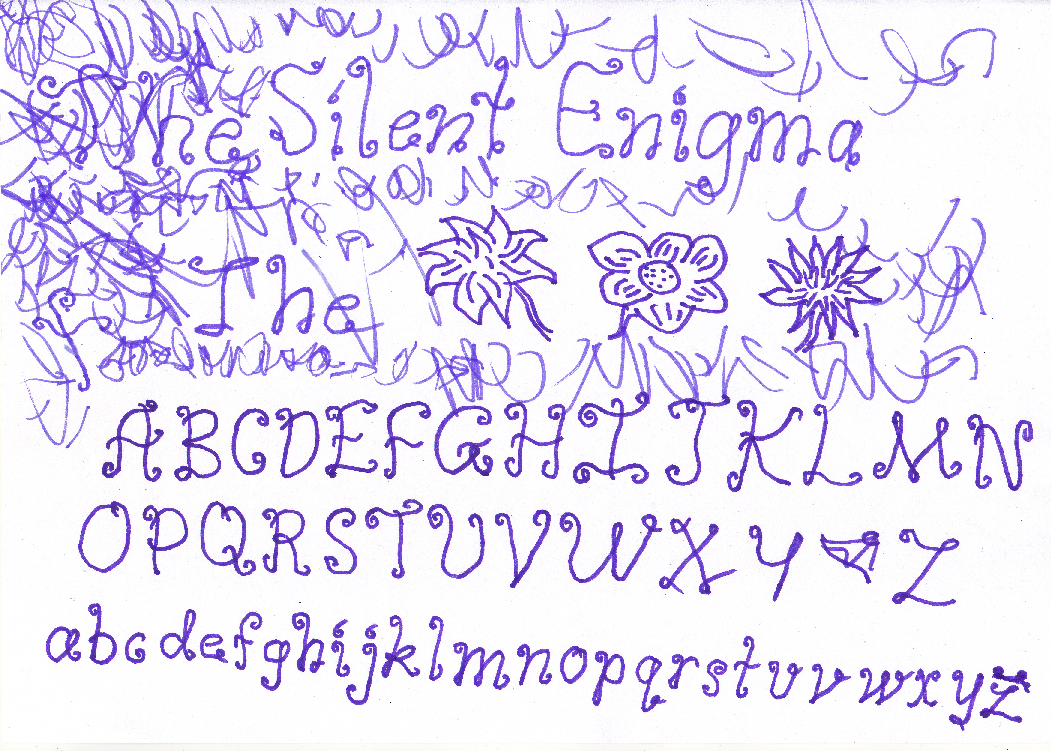 The Silent Enigma
The
ABCDEFGHIJKLMN
OPQRSTUVWXYZ
abcdefghijklmnopqrstuvwxyz